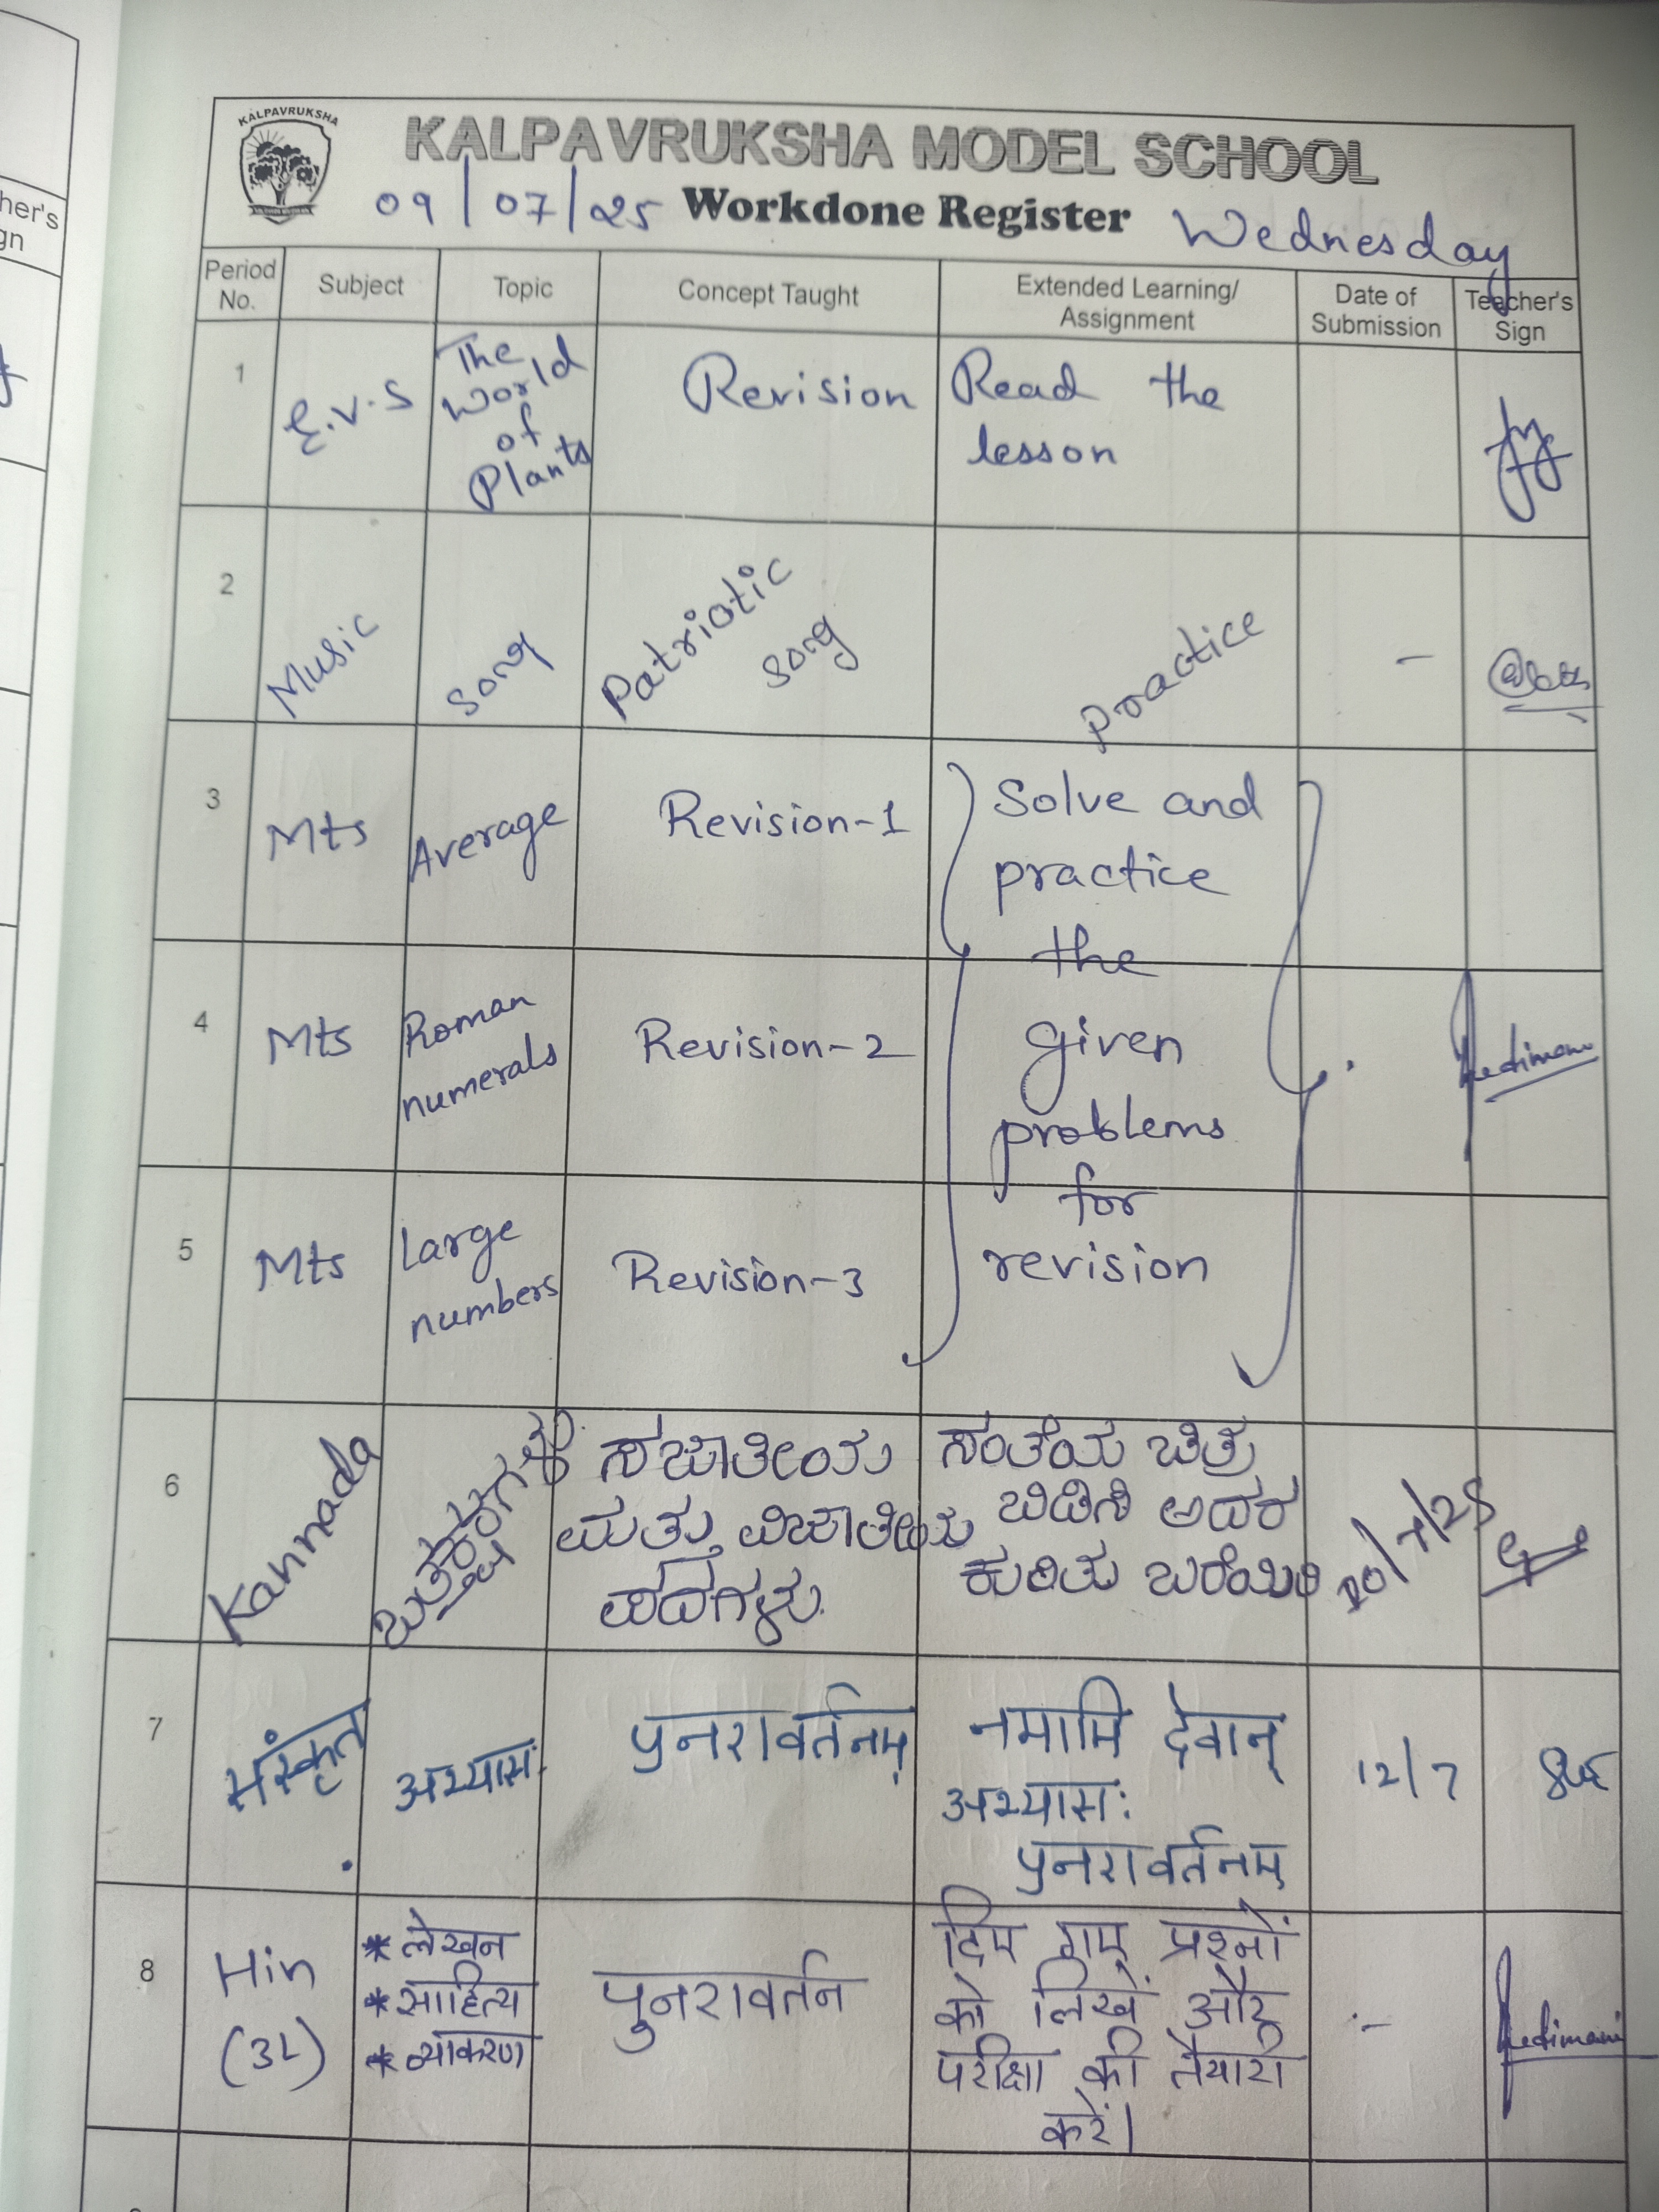 her's
gn
KALPAVRUKSHA
KALPAVRUKSHA MODEL SCHOOL
09/07/25 Workdone Register Wednesday
Period No. Subject Topic Concept Taught Extended Learning/ Assignment Date of Submission Teacher's Sign
1 E.V.S The World of Plants Revision Read the lesson
2 Music song Patriotic song practice -
3 Mts Average Revision-1 Solve and practice the
4 Mts Roman numerals Revision-2 given problems
5 Mts Large numbers Revision-3 for revision
6 Kannada ಸಜಾತೀಯ ಮತ್ತು ವಿಜಾತೀಯ ಪದಗಳು. ಸಂತೆಯ ಚಿತ್ರ ಬಿಡಿಸಿ ಅದರ ಕುರಿತು ಬರೆಯಿರಿ 10/7/25
7 संस्कृत अभ्यासः पुनरावर्तनम् नमामि देवान् अभ्यासः पुनरावर्तनम् 12/7
8 Hin (3L) * लेखन * साहित्य * व्याकरण पुनरावर्तन दिए गए प्रश्नों को लिखें और परीक्षा की तैयारी करें। -